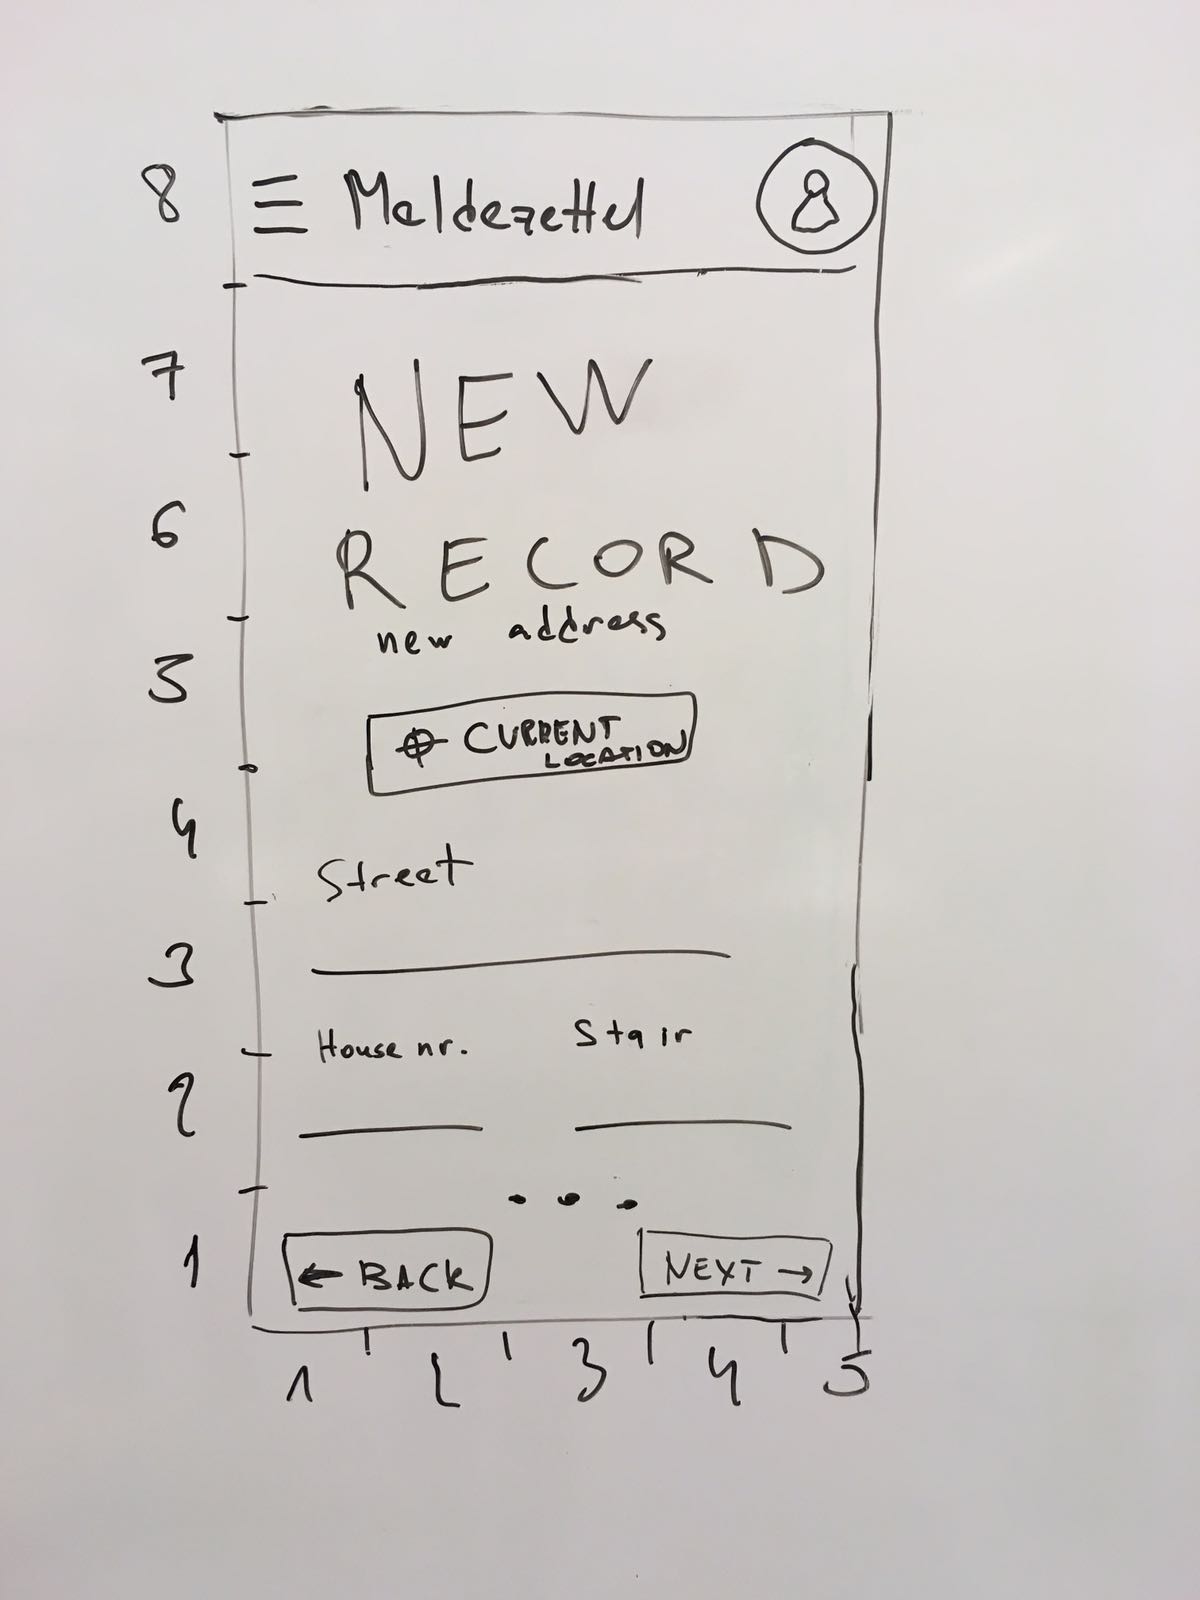 8
☰ Meldezettel
7
NEW
6
RECORD
new address
5
⌖ CURRENT
LOCATION
4
Street
3
House nr. Stair
2
...
1
← BACK NEXT →
1 2 3 4 5